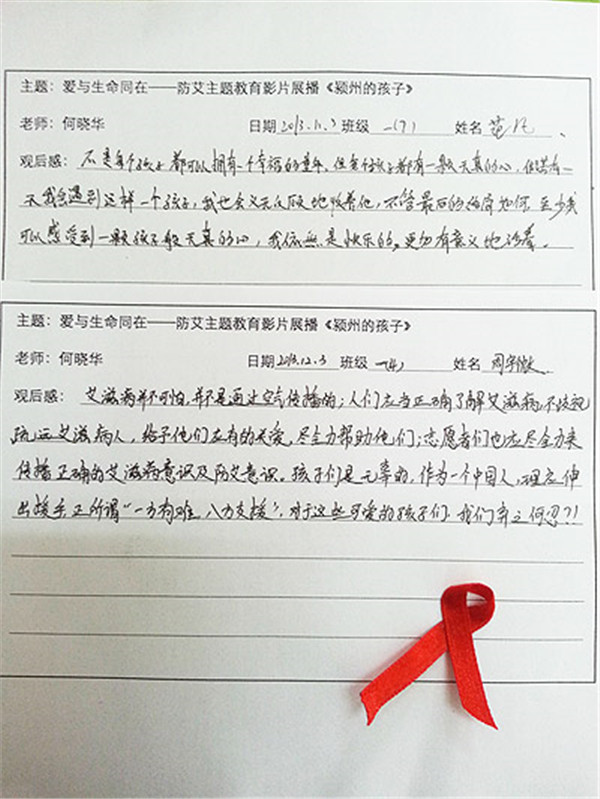 主题：爱与生命同在——防艾主题教育影片展播《颍州的孩子》
老师：何晓华 日期 2013.1 班级 一(7) 姓名 范
观后感：不是每个孩子都可以拥有一个幸福的童年，但每个孩子都有一颗天真的心，但若有一
天我会遇到这样一个孩子，我也会义无反顾地收养他，不管最后的结局如何 至少我
可以感受到一颗孩子般天真的心，我依然是快乐的。更加有意义地活着。
主题：爱与生命同在——防艾主题教育影片展播《颍州的孩子》
老师：何晓华 日期 2013.12.3 班级 一(4) 姓名 周宇
观后感：艾滋病并不可怕，并不是通过空气传播的；人们应当正确了解艾滋病，不歧视
疏远艾滋病人，给予他们应有的关爱，尽全力帮助他们；志愿者们也应尽全力来
传播正确的艾滋病意识及防艾意识。孩子们是无辜的，作为一个中国人，理应伸
出援手 正所谓“一方有难，八方支援”，对于这些可爱的孩子们，我们弃之何忍？！